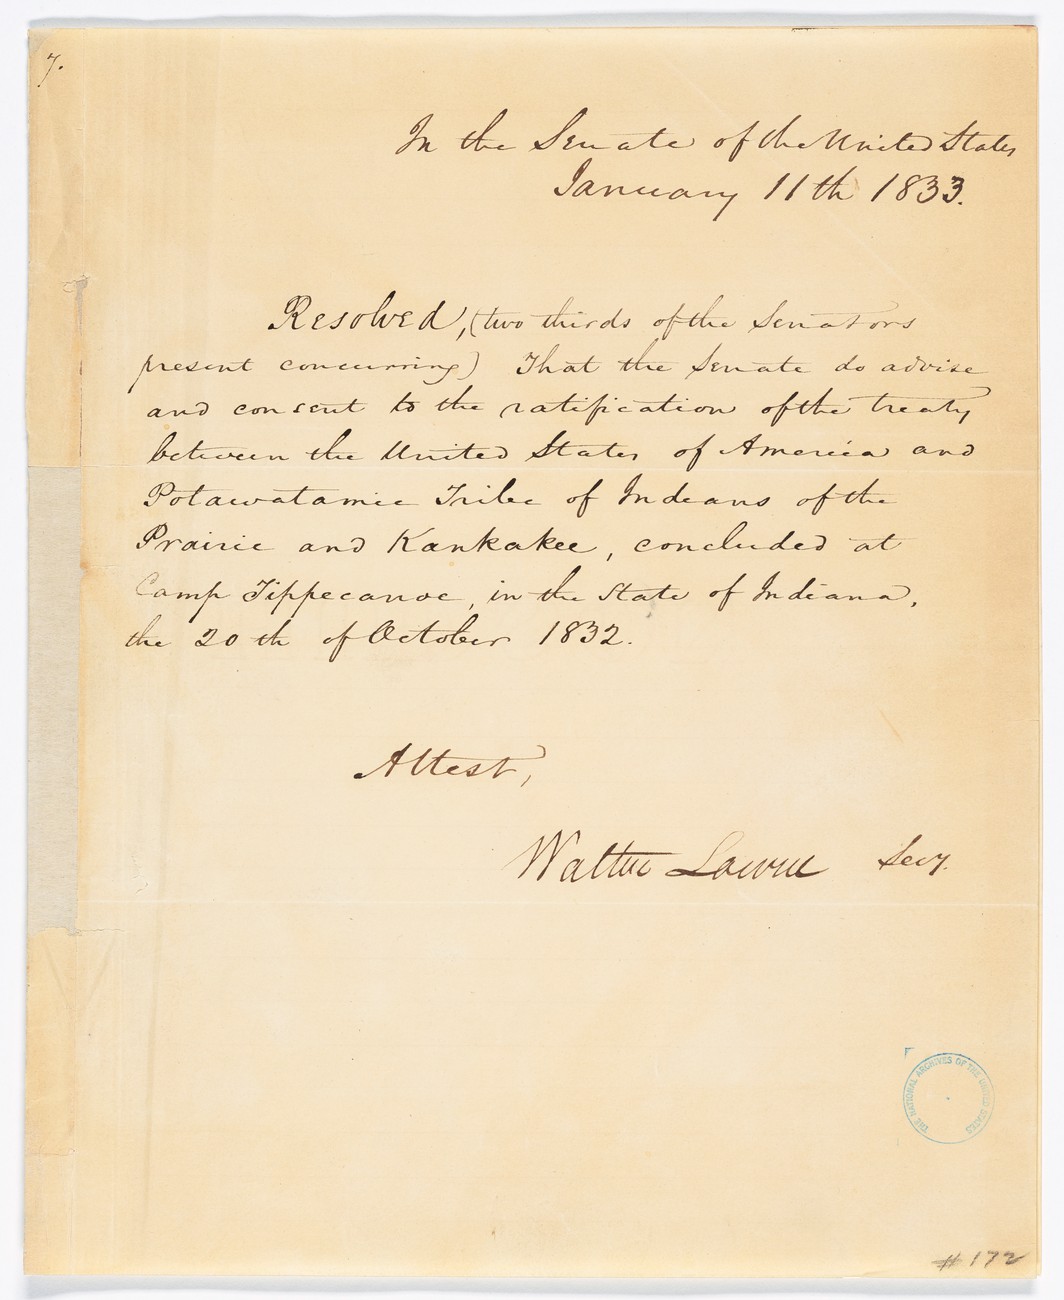 7.
In the Senate of the United States
January 11th 1833.
Resolved, (two thirds of the Senators
present concurring) That the Senate do advise
and consent to the ratification of the treaty
between the United States of America and
Potawatamie Tribe of Indians of the
Prairie and Kankakee, concluded at
Camp Tippecanoe, in the State of Indiana,
the 20th of October 1832.
Attest,
Walter Lowrie Secy.
THE NATIONAL ARCHIVES OF THE UNITED STATES
#172